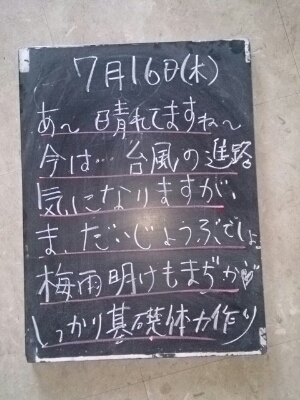 7月16日(木)
あ〜晴れてますね〜
今は…台風の進路
気になりますが、
ま、だいじょうぶでしょ
梅雨明けもまぢか♡
しっかり基礎体力作り